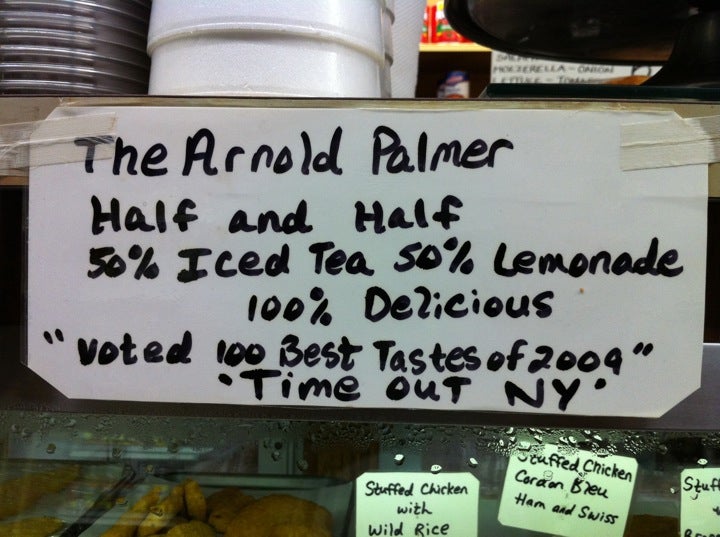 MOZZERELLA - ONION
The Arnold Palmer
Half and Half
50% Iced Tea 50% Lemonade
100% Delicious
"Voted 100 Best Tastes of 2009"
"Time OUT NY"
Stuffed Chicken
with
Wild Rice
Stuffed Chicken
Cordon Bleu
Ham and Swiss